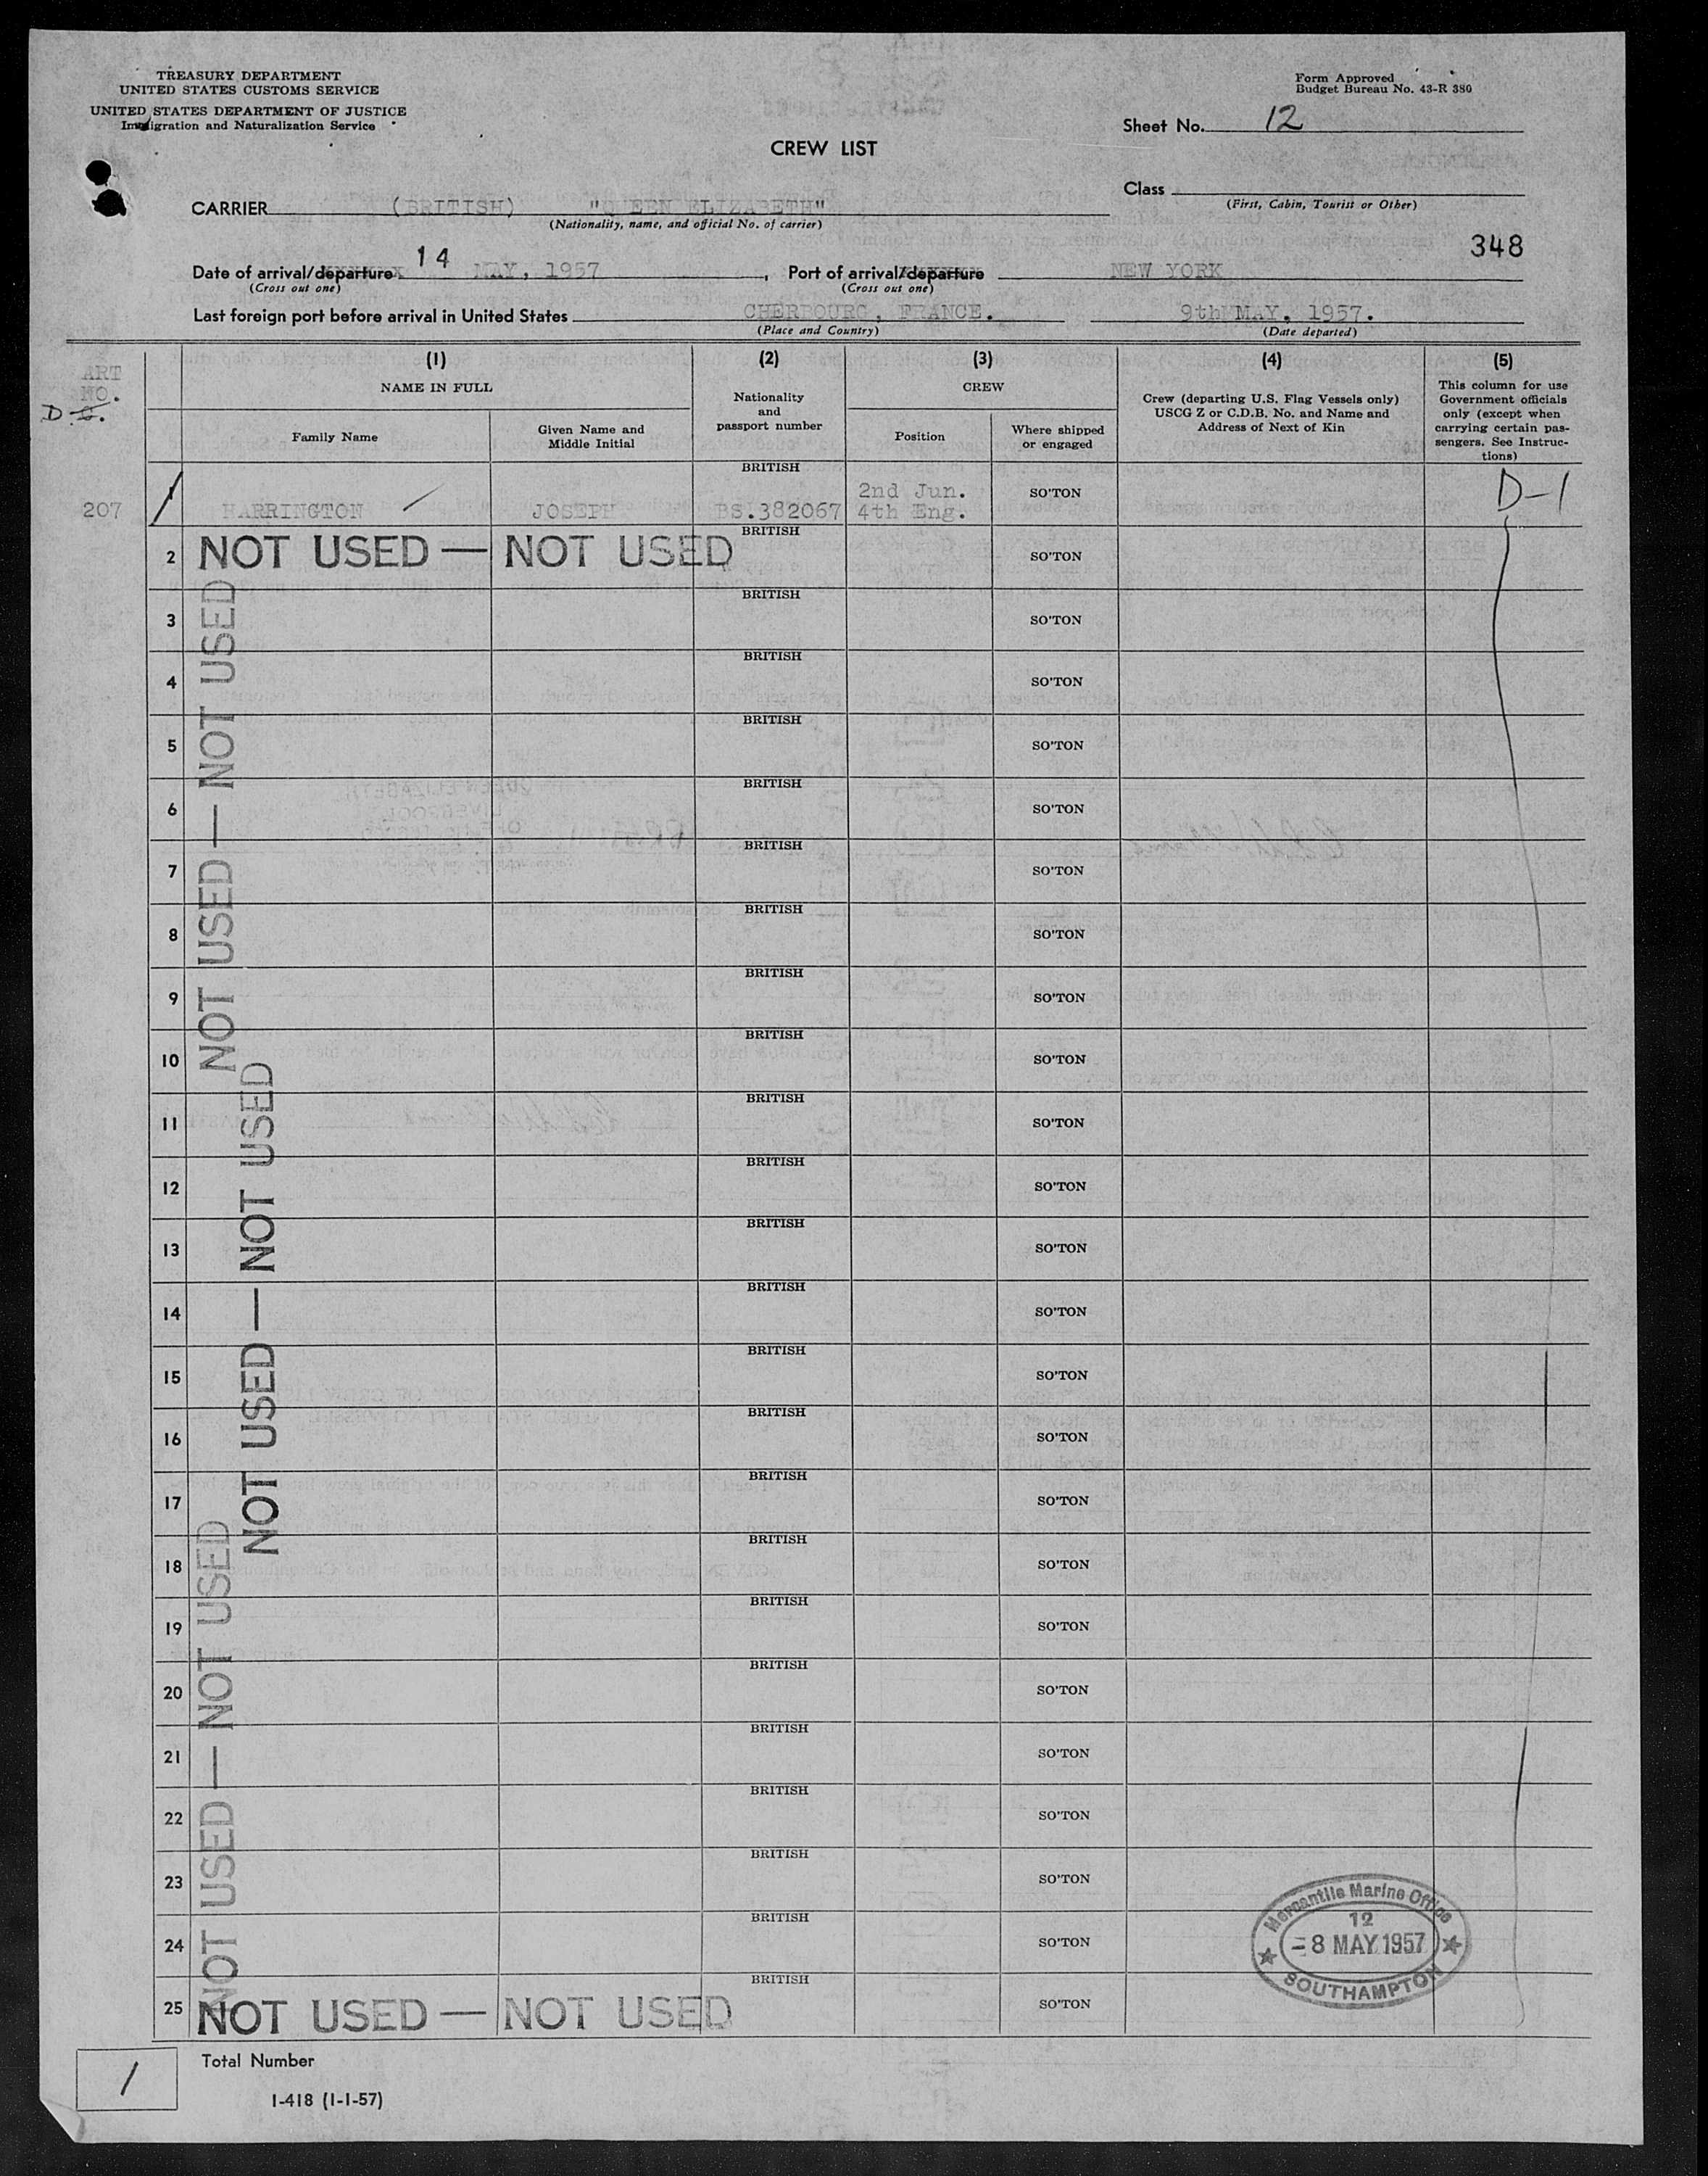 TREASURY DEPARTMENT
UNITED STATES CUSTOMS SERVICE
UNITED STATES DEPARTMENT OF JUSTICE
Immigration and Naturalization Service
Form Approved
Budget Bureau No. 43-R 380
Sheet No. 12
CREW LIST
Class
(First, Cabin, Tourist or Other)
CARRIER (BRITISH) "QUEEN ELIZABETH"
(Nationality, name, and official No. of carrier)
348
Date of arrival/departure 14 MAY, 1957, Port of arrival/departure NEW YORK
(Cross out one) (Cross out one)
Last foreign port before arrival in United States CHERBOURG, FRANCE. 9th MAY, 1957.
(Place and Country) (Date departed)
ART
NO.
D-S.
(1) (2) (3) (4) (5)
NAME IN FULL
Family Name
Given Name and
Middle Initial
Nationality
and
passport number
CREW
Position
Where shipped
or engaged
Crew (departing U.S. Flag Vessels only)
USCG Z or C.D.B. No. and Name and
Address of Next of Kin
This column for use
Government officials
only (except when
carrying certain pas-
sengers. See Instruc-
tions)
207 1 HARRINGTON JOSEPH BRITISH BS.382067 2nd Jun. 4th Eng. SO'TON D-1
2 NOT USED — NOT USED BRITISH SO'TON
3 BRITISH SO'TON
4 BRITISH SO'TON
5 BRITISH SO'TON
6 BRITISH SO'TON
7 BRITISH SO'TON
8 BRITISH SO'TON
9 BRITISH SO'TON
10 BRITISH SO'TON
11 BRITISH SO'TON
12 BRITISH SO'TON
13 BRITISH SO'TON
14 BRITISH SO'TON
15 BRITISH SO'TON
16 BRITISH SO'TON
17 BRITISH SO'TON
18 BRITISH SO'TON
19 BRITISH SO'TON
20 BRITISH SO'TON
21 BRITISH SO'TON
22 BRITISH SO'TON
23 BRITISH SO'TON
24 BRITISH SO'TON
25 NOT USED — NOT USED BRITISH SO'TON
NOT USED — NOT USED
NOT USED — NOT USED
NOT USED — NOT USED
Mercantile Marine Office
12
-8 MAY 1957
SOUTHAMPTON
1 Total Number
I-418 (1-1-57)